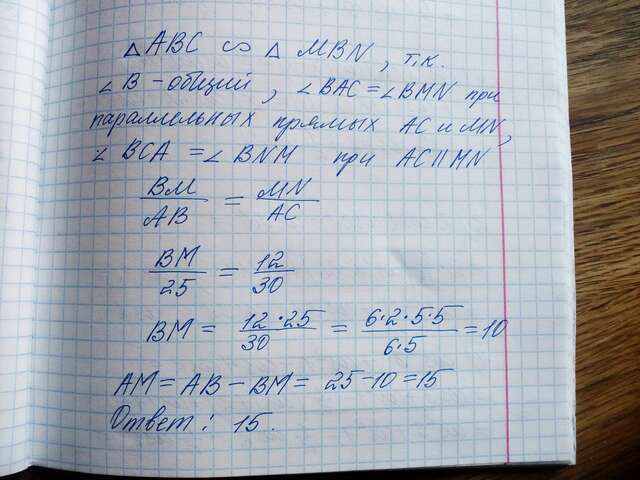 △ ABC ∽ △ MBN, т.к.
∠B - общий, ∠BAC = ∠BMN при
параллельных прямых AC и MN,
∠ BCA = ∠ BNM при AC || MN
BM/AB = MN/AC
BM/25 = 12/30
BM = 12·25/30 = 6·2·5·5/6·5 = 10
AM = AB - BM = 25-10 = 15
Ответ: 15.